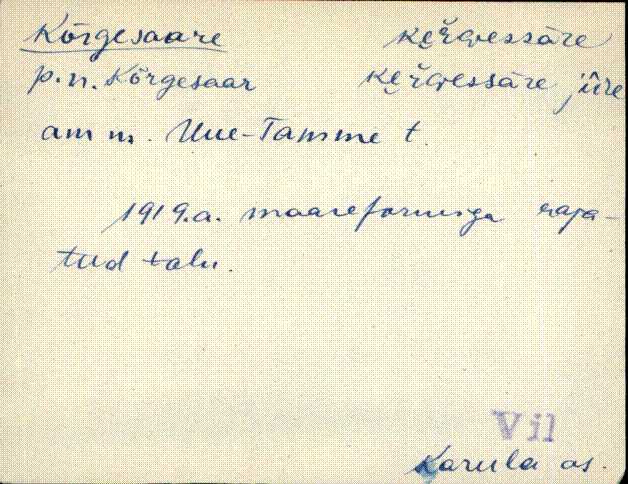 Kõrgesaare keřgessāre
p.n. Kõrgesaar keřgessāre jūre
am m. Uue-Tamme t.
1919.a. maareformiga raja-
tud talu.
Vil
Karula as.